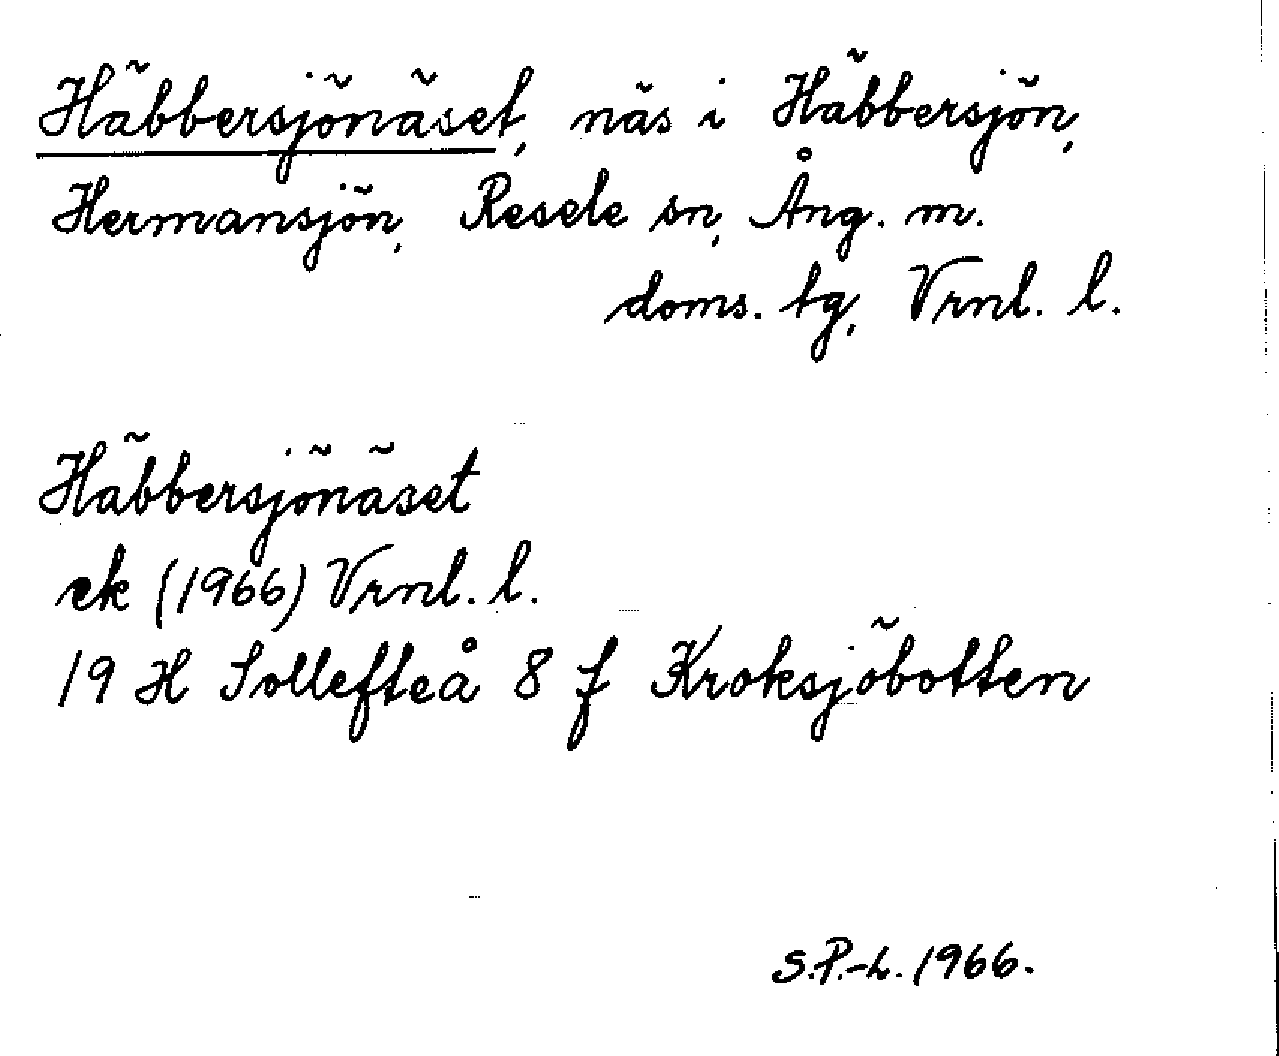 Häbbersjönäset, näs i Häbbersjön,
Hermansjön, Resele sn, Ång. m.
doms. tg, Vrnl. l.
Häbbersjönäset
ek (1966) Vrnl. l.
19 H Sollefteå 8 f Kroksjöbotten
S.P.-L. 1966.